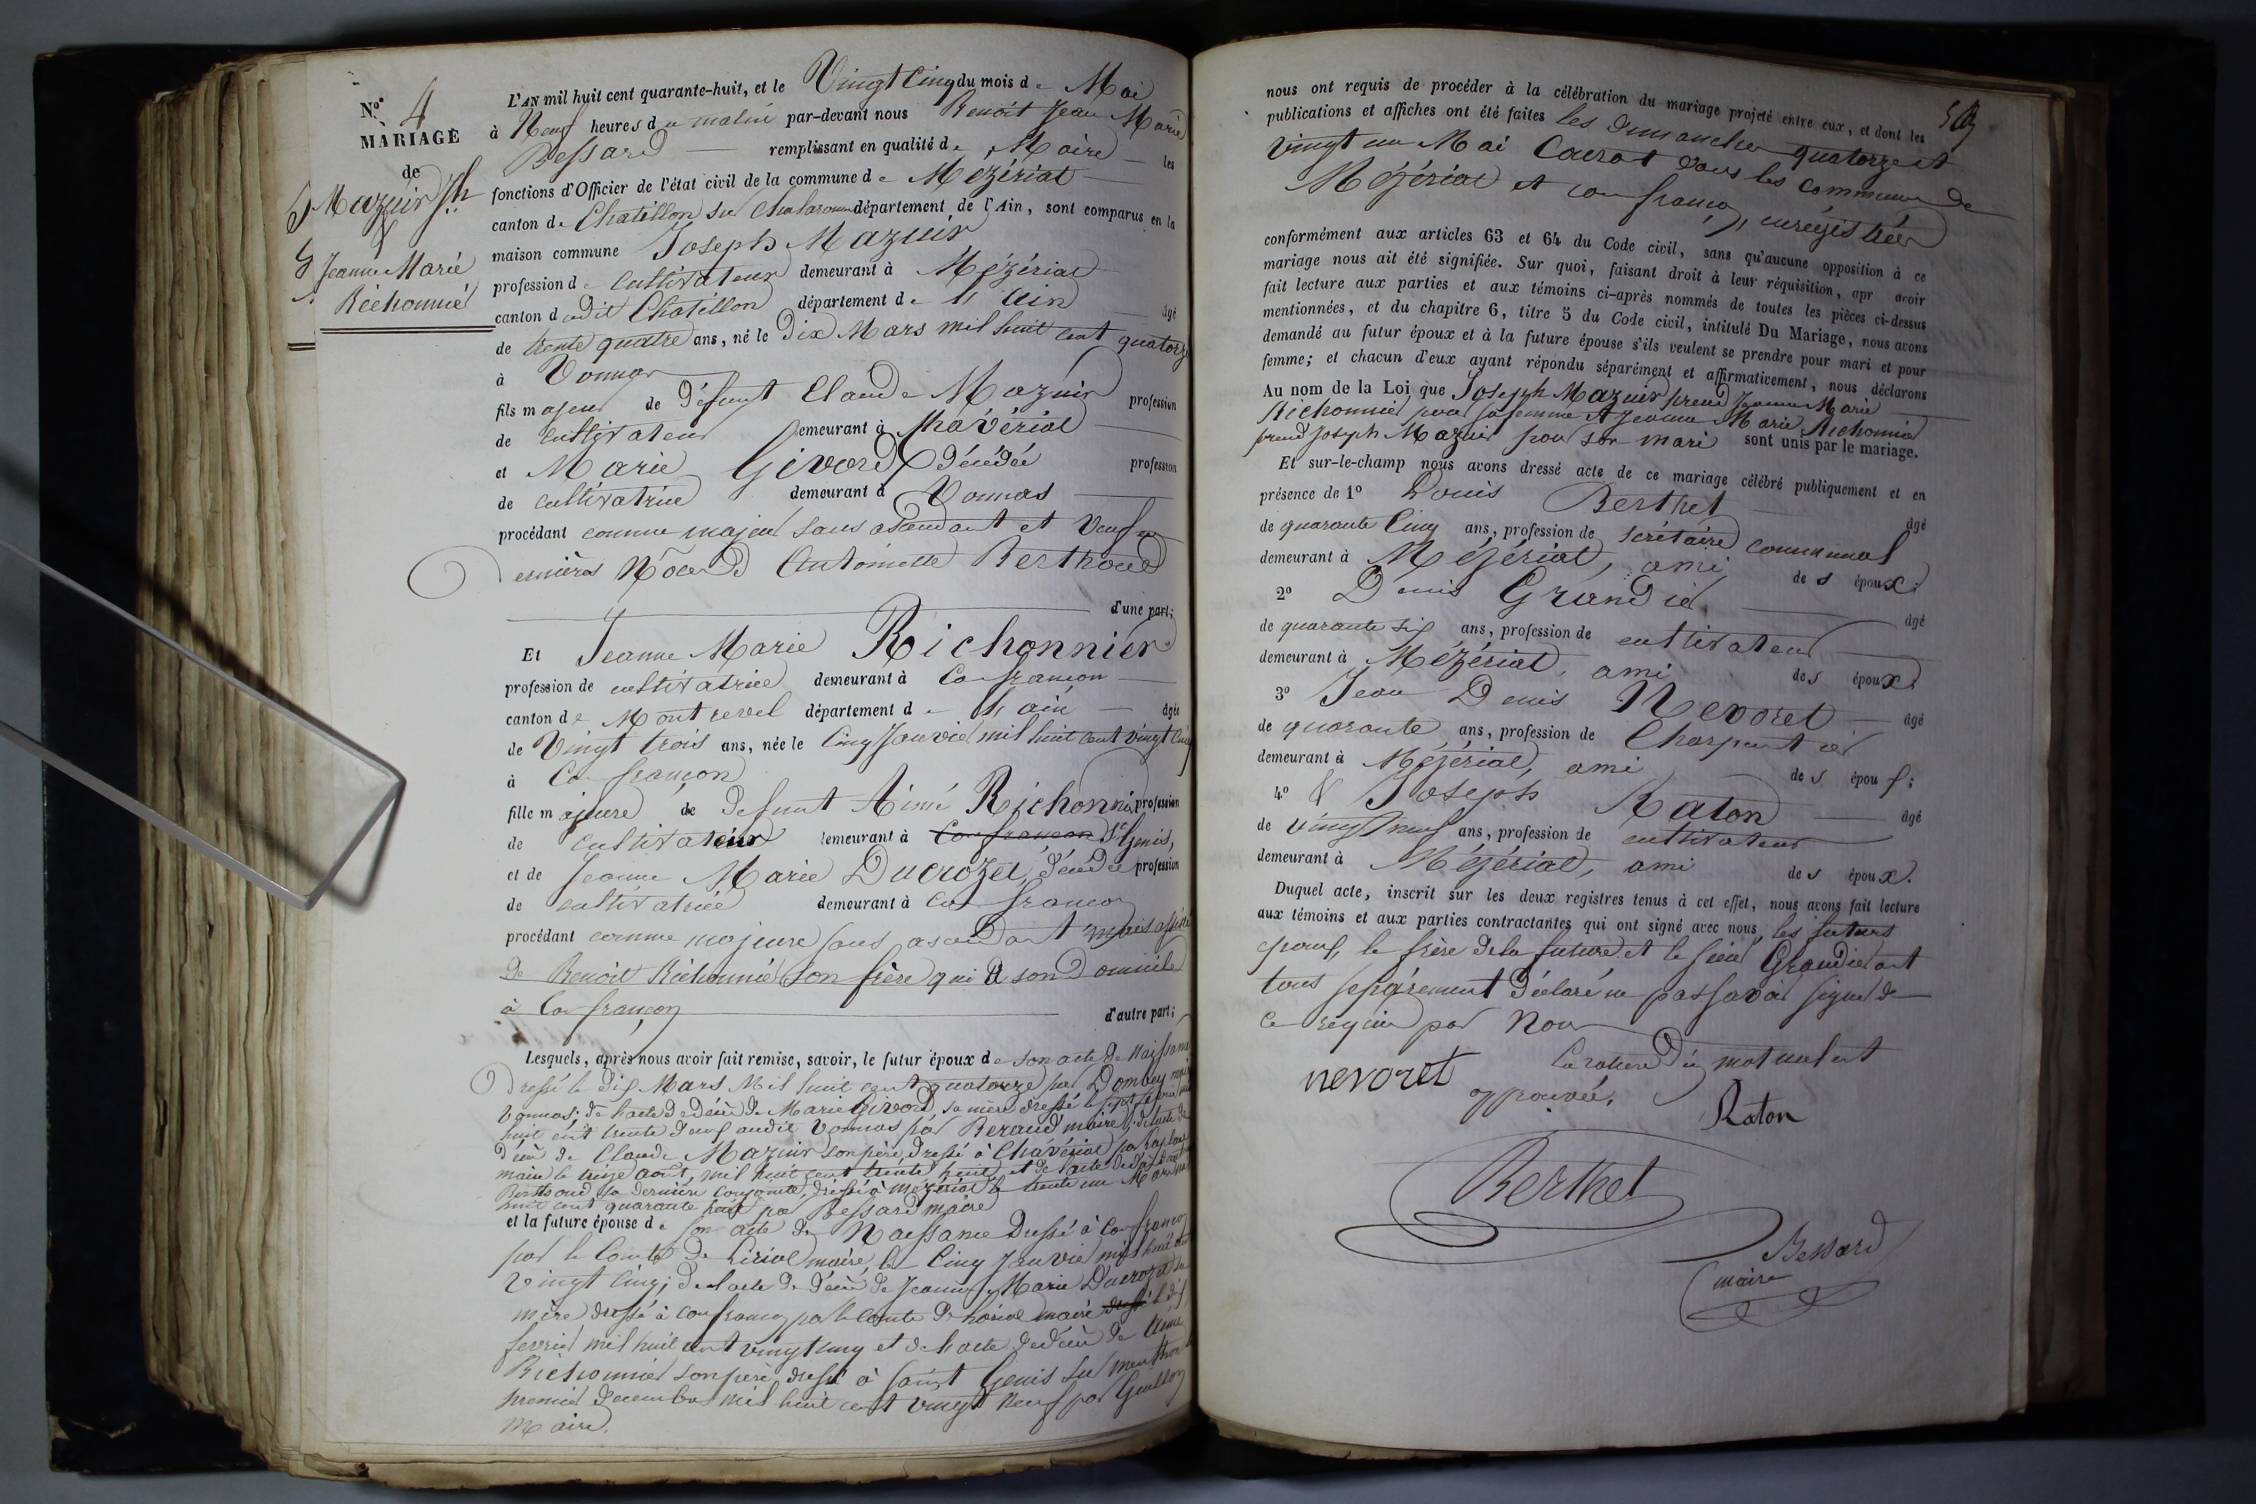 N.º 4
MARIAGE
de
Mazuir Jh
&
Jeanne Marie
Richonnier
L'AN mil huit cent quarante-huit, et le Vingt Cinq du mois de Mai
à Neuf heures du matin par-devant nous Benoit Jean Marie
Bessard remplissant en qualité de Maire les
fonctions d'Officier de l'état civil de la commune de Mézériat
canton de Chatillon sur Chalaronne département de l'Ain, sont comparus en la
maison commune Joseph Mazuir
profession de cultivateur demeurant à Mézériat
canton dudit Chatillon département de l'Ain âgé
de trente quatre ans, né le Dix Mars mil huit cent quatorze
à Vonnas
fils majeur de défunt Claude Mazuir profession
de cultivateur demeurant à Chavériat
et Marie Givord décédée profession
de cultivatrice demeurant à Vonnas
procédant comme majeur sans ascendant et Veuf en
dernières Nôces d'Antoinette Berthoud
d'une part;
Et Jeanne Marie Richonnier
profession de cultivatrice demeurant à Confrançon
canton de Montrevel département de l'ain âgée
de Vingt trois ans, née le Cinq Janvier mil huit cent vingt Cinq
à Confrançon
fille majeure de defunt Aimé Richonnier profession
de cultivateur demeurant à Confrançon St Genis,
et de Jeanne Marie Ducrozet, décédée profession
de cultivatrice demeurant à Confrançon
procédant comme majeure sans ascendant mais assistée
de Benoit Richonnier son frère qui a son domicile
à Confrançon d'autre part;
Lesquels, après nous avoir fait remise, savoir, le futur époux de son acte de Naissance
Dressé le dix Mars Mil huit cent quatorze par Dombey
Vonnas; de l'acte de décès de Marie Givord, sa mère dressé le sept
huit cent trente neuf audit Vonnas par Beraud maire; de l'acte de
décès de Claude Mazuir son père, dressé à Chavériat par
maire le treize août, mil huit cent trente huit et de l'acte de décès
Berthoud sa dernière conjointe, dressé à Mézériat le trente un Mars
huit cent quarante huit par Bessard maire
et la future épouse de son acte de Naissance Dressé à Confrançon
par le Comte de Loriol maire, le Cinq Janvier mil huit cent
Vingt Cinq; de l'acte de décès de Jeanne Marie Ducrozet sa
mère dressé à confrançon par le Comte de Loriol maire dressé le dix
fevrier mil huit cent vingt cinq et de l'acte de décès de Aimé
Richonnier son père dressé à Saint Genis sur menthon le
premier decembre mil huit cent vingt Neuf par Guillon
Maire.
nous ont requis de procéder à la célébration du mariage projeté entre eux, et dont les
publications et affiches ont été faites les dimanches quatorze et
vingt un Mai Courant dans les communes de
Mézériat et confrançon, enregistrées
conformément aux articles 63 et 64 du Code civil, sans qu'aucune opposition à ce
mariage nous ait été signifiée. Sur quoi, faisant droit à leur réquisition, apr avoir
fait lecture aux parties et aux témoins ci-après nommés de toutes les pièces ci-dessus
mentionnées, et du chapitre 6, titre 5 du Code civil, intitulé Du Mariage, nous avons
demandé au futur époux et à la future épouse s'ils veulent se prendre pour mari et pour
femme; et chacun d'eux ayant répondu séparément et affirmativement, nous déclarons
Au nom de la Loi que Joseph Mazuir prend Jeanne Marie
Richonnier pour sa femme et Jeanne Marie Richonnier
prend Joseph Mazuir pour son mari sont unis par le mariage.
Et sur-le-champ nous avons dressé acte de ce mariage célébré publiquement et en
présence de 1º Louis Berthet âgé
de quarante Cinq ans, profession de secrétaire communal
demeurant à Mézériat, ami des époux;
2º Denis Grandier âgé
de quarante six ans, profession de cultivateur
demeurant à Mézériat, ami des époux;
3º Jean Denis Nevoret âgé
de quarante ans, profession de Charpentier
demeurant à Mézériat, ami des époux;
4º & Joseph Raton âgé
de vingt neuf ans, profession de cultivateur
demeurant à Mézériat, ami des époux.
Duquel acte, inscrit sur les deux registres tenus à cet effet, nous avons fait lecture
aux témoins et aux parties contractantes qui ont signé avec nous, les futurs
époux, le frère de la future et le sieur Grandier ont
tous séparément déclaré ne pas savoir signer de
ce requis par Nous
La rature d'un mot nul est
approuvée.
nevoret
Raton
Berthet
Bessard
maire